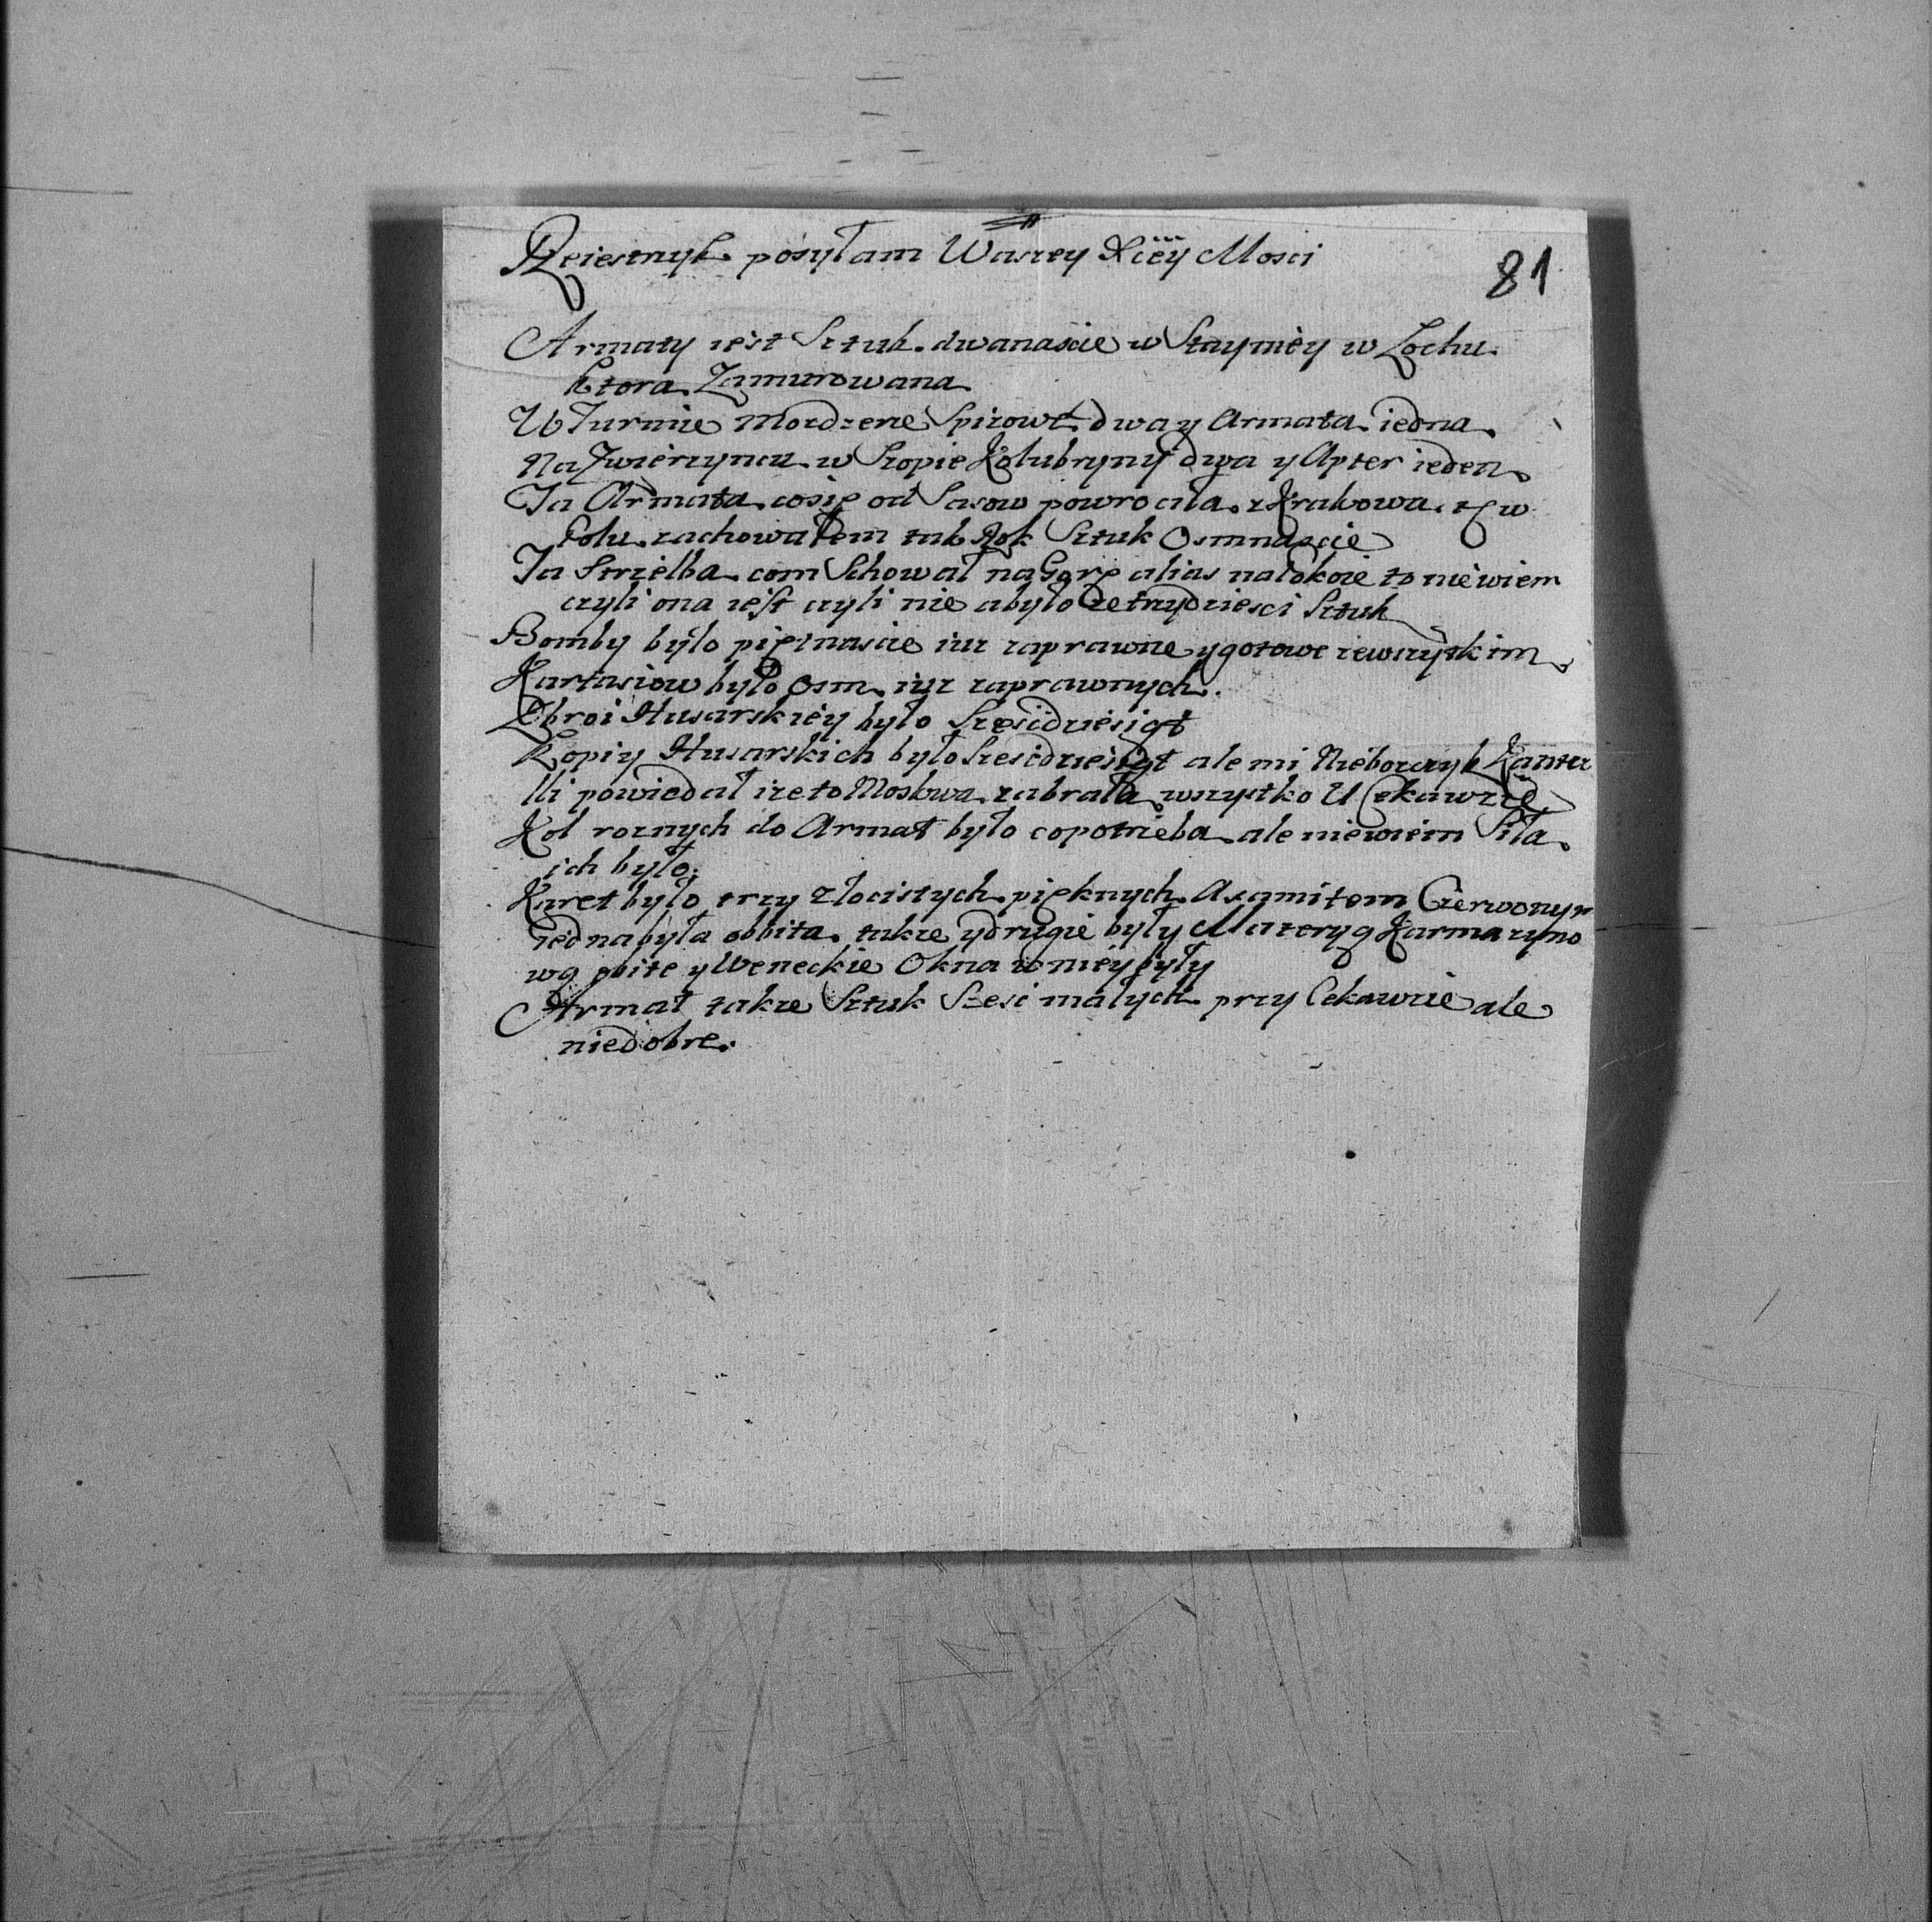 Rejestrzyk posyłam Waszey Xcey Mosci
81
Armaty iest Sztuk dwanascie w Stayniey w Lochu
ktora Zamurowana
W Turmie mozdzerze Spizowe dwa y Armata iedna
Na Zwierzyncu w Szopie Kolubryny dwa y Apter ieden
Ta Armata cosię od Sasow powrociła z Krakowa tę w
Polu zachowałem tak Rok Sztuk Osmnascie
Ta Strzelba com Schował na Gorę alias na to niewiem
czyli ona iest czyli nie a było ze trzydziesci Sztuk
Bomby było piętnascie iuz zaprawne y gotowe zewszyskim
Kartasiow było Osm iuz zaprawnych.
Zbroi Husarskiey było Szescdziesiąt
Kopiy Husarskich było Szescdziesiąt ale mi Nieboszczyk Kanter
lli powiedał ize to Moskwa zabrała wszystko U Cekawzie
Koł roznych do Armat było co potrzeba ale niewiem Siła
ich było.
Karet było trzy złocistych pięknych Axamitem Czerwonym
iedna była obbita takze y drugie były Materyą Karmazyno
wą obite y Weneckie Okna w niey były
Armat takze Sztuk Szesc małych przy Cekawzie ale
niedobre.